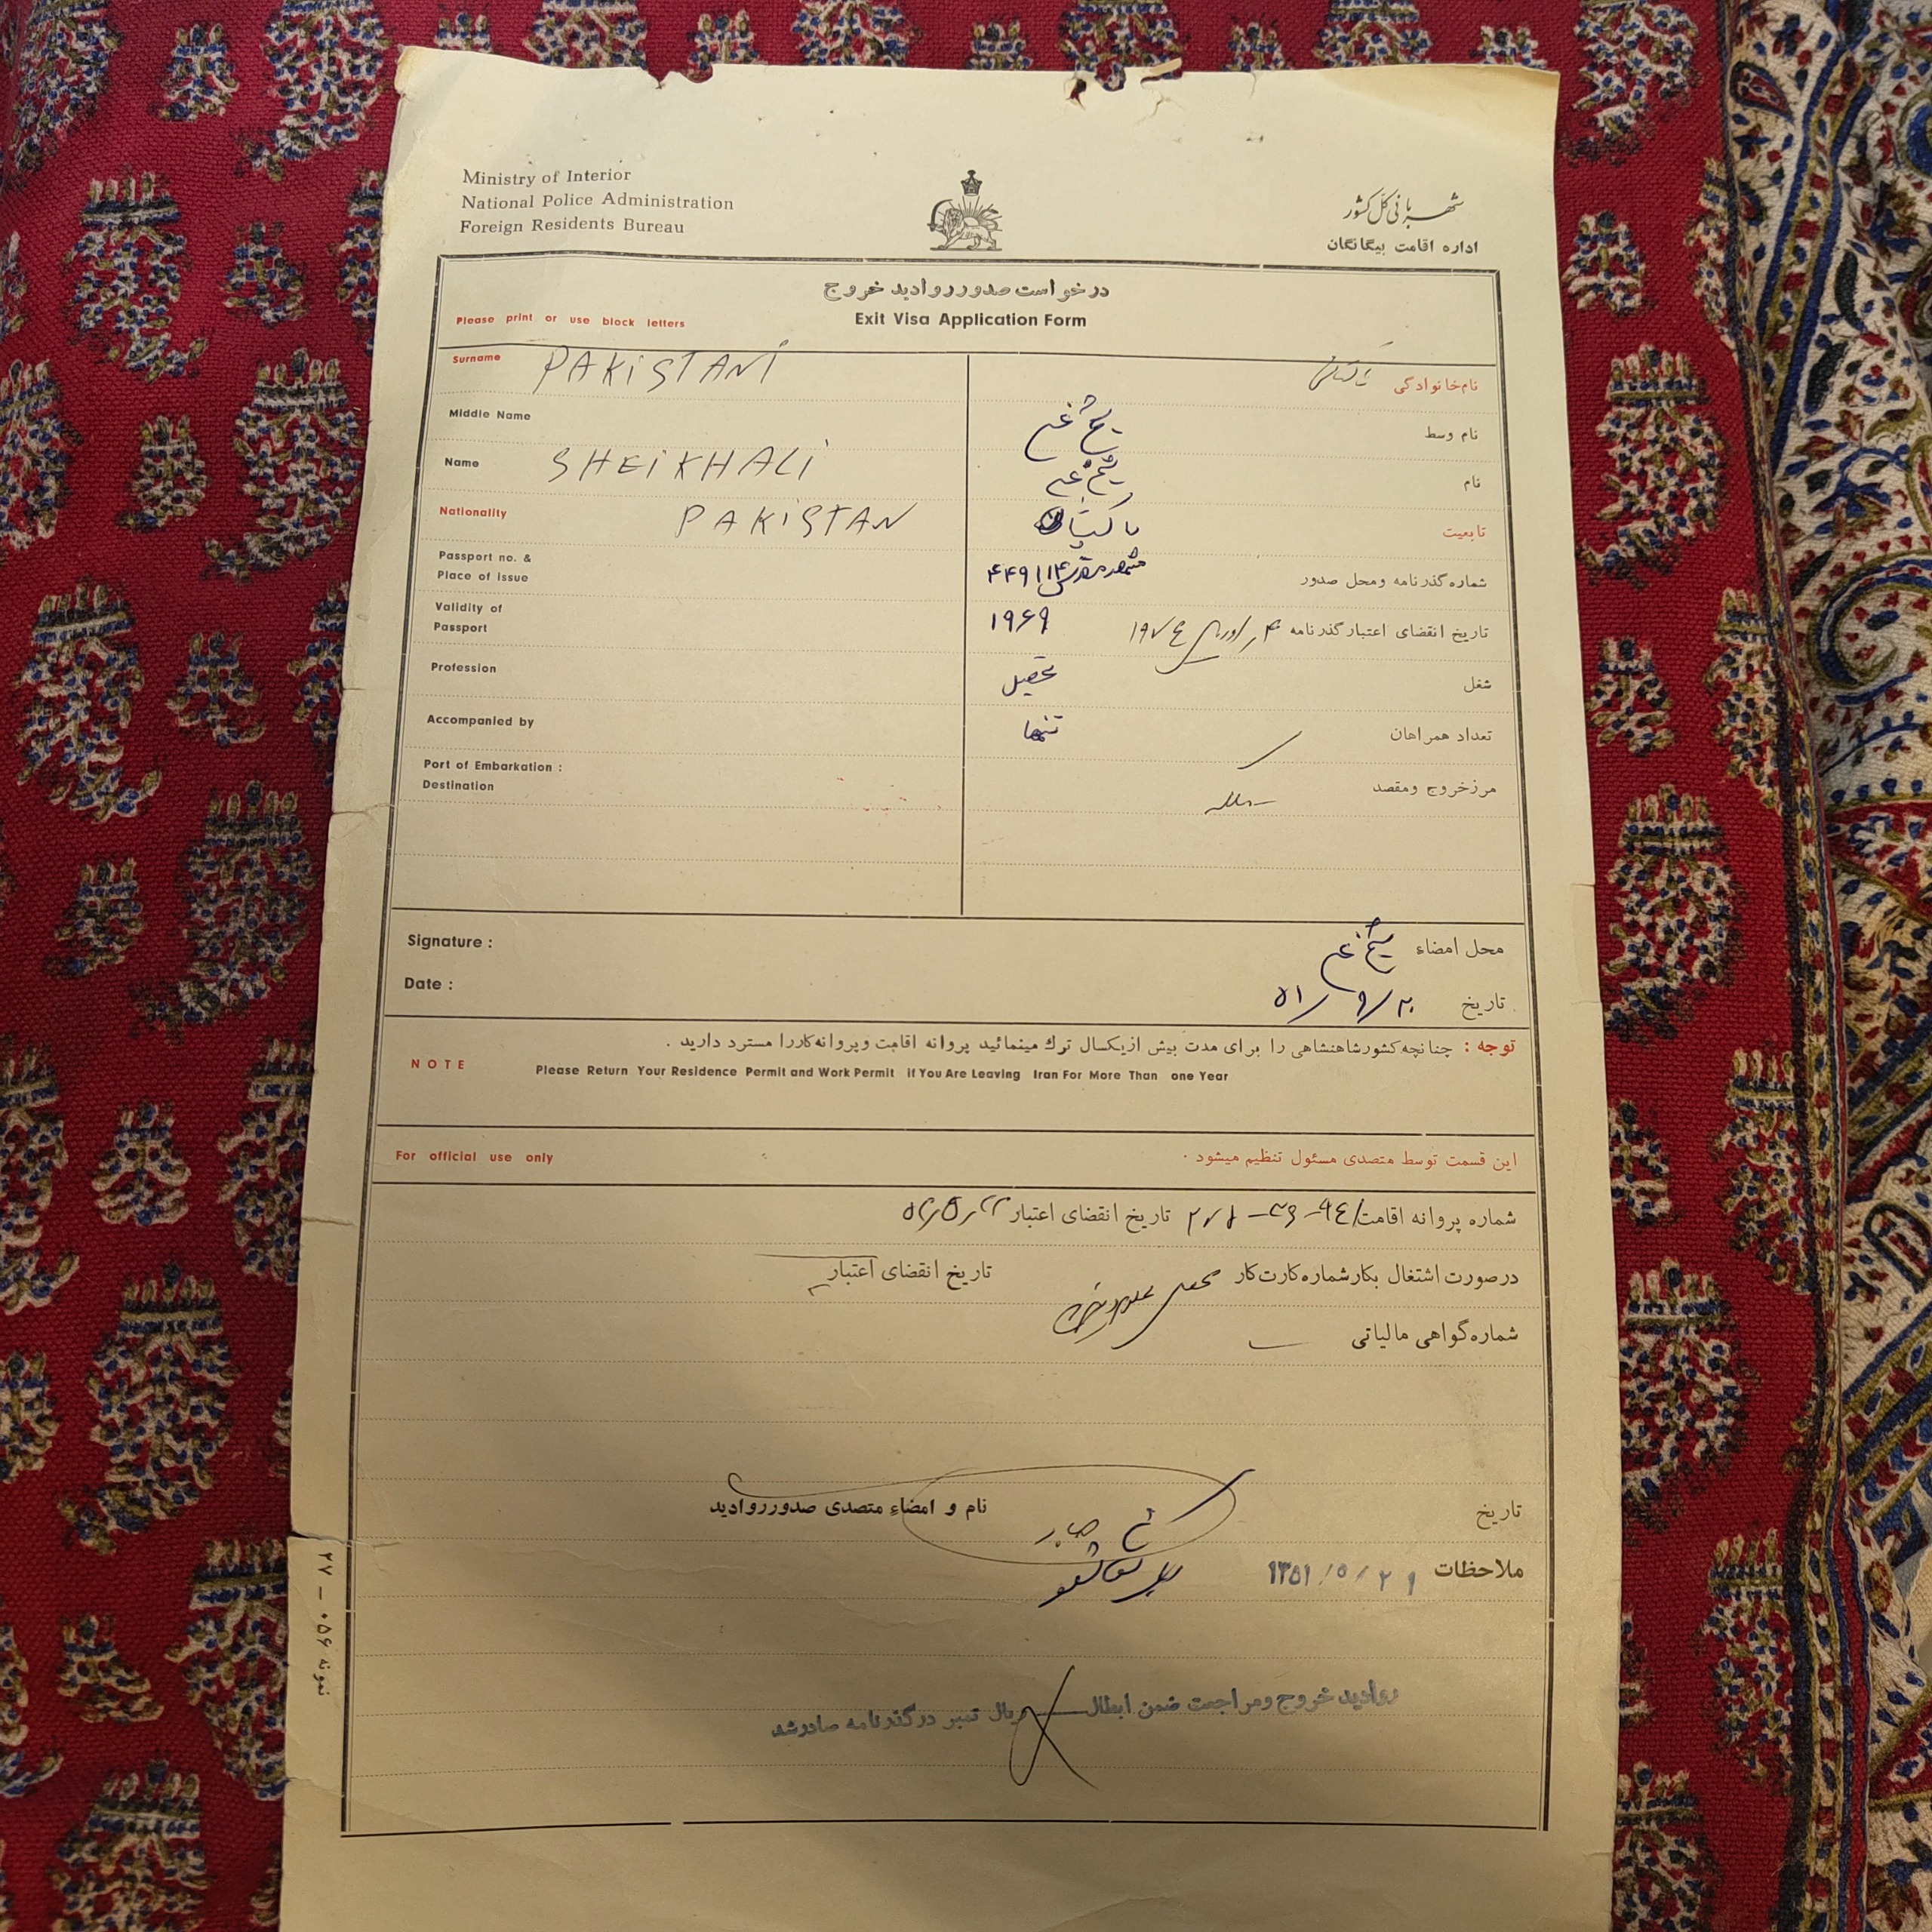 Ministry of Interior
National Police Administration
Foreign Residents Bureau
شهربانی کل کشور
اداره اقامت بیگانگان
درخواست صدور روادید خروج
Please print or use block letters
Exit Visa Application Form
Surname PAKiSTANi
نام خانوادگی
Middle Name
نام وسط
Name SHEiKHALi
نام
Nationality PAKiSTAN
تابعیت پاکستان
Passport no. &
Place of issue
شماره گذرنامه ومحل صدور
Validity of
Passport
تاریخ انقضای اعتبار گذرنامه
۱۹۶۹
Profession
شغل تحصیل
Accompanied by
تعداد همراهان تنها
Port of Embarkation :
Destination
مرز خروج ومقصد
Signature :
محل امضاء
Date :
تاریخ
توجه : چنانچه کشور شاهنشاهی را برای مدت بیش از یکسال ترك مینمائید پروانه اقامت و پروانه کار را مسترد دارید .
NOTE Please Return Your Residence Permit and Work Permit if You Are Leaving Iran For More Than one Year
For official use only
این قسمت توسط متصدی مسئول تنظیم میشود .
شماره پروانه اقامت تاریخ انقضای اعتبار
در صورت اشتغال بکار شماره کارت کار تاریخ انقضای اعتبار
شماره گواهی مالیاتی
تاریخ نام و امضاء متصدی صدور روادید
ملاحظات ۱۳۵۱/۵/۲۹
روادید خروج ومراجعت ضمن ابطال ریال تمبر در گذرنامه صادر شد
نمونه ۰۵۶ – ۲۷